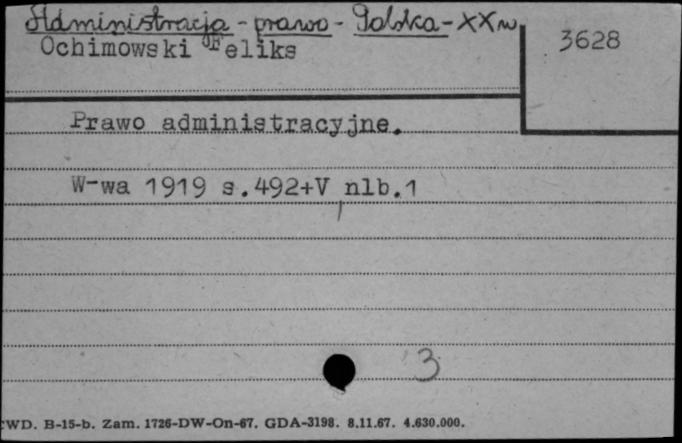 Administracja - prawo - Polska - XX w.
Ochimowski Feliks
3628
Prawo administracyjne.
W-wa 1919 s.492+V nlb.1
3
CWD. B-15-b. Zam. 1726-DW-On-67. GDA-3198. 8.11.67. 4.630.000.